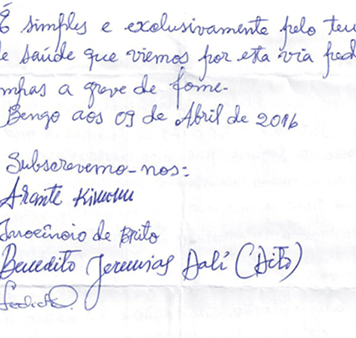 É simples e exclusivamente pelo teu
de saúde que viemos por esta via pedi
mpas a greve de fome-
Bengo aos 09 de Abril de 2016
Subscrevemo-nos:
Arante Kivuvu
Inocêncio de Brito
Benedito Jeremias Dali (Dito)